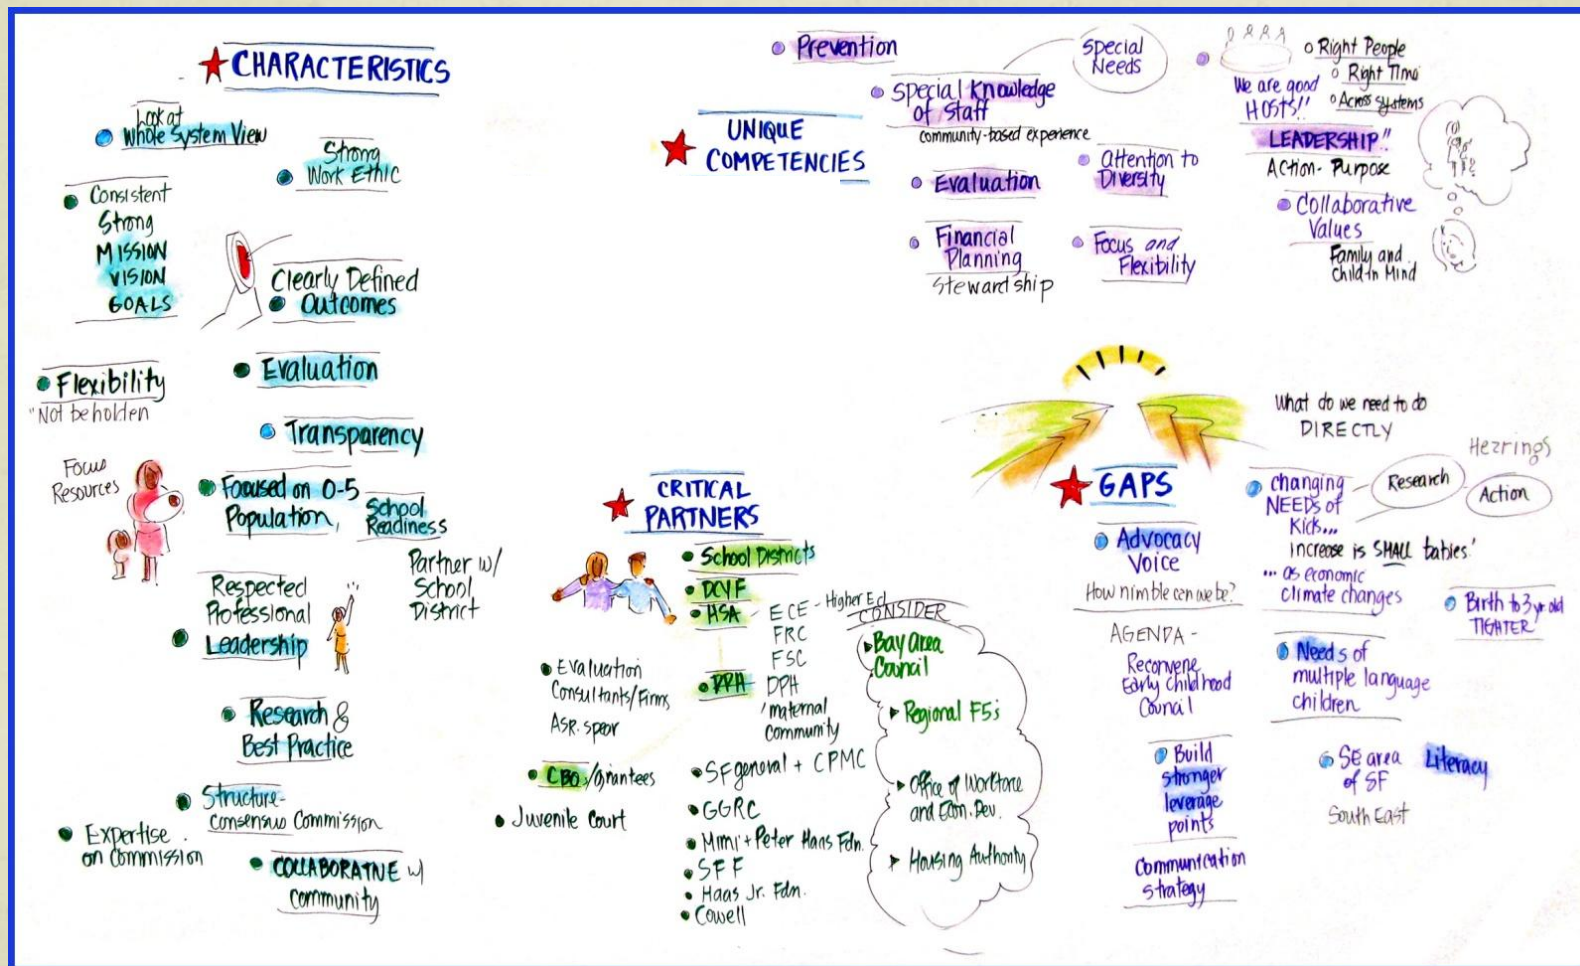 CHARACTERISTICS
Look at
Whole System View
Strong
Work Ethic
Consistent
Strong
MISSION
VISION
GOALS
Clearly Defined
Outcomes
Flexibility
"Not beholden
Evaluation
Transparency
Focus
Resources
Focused on 0-5
Population,
School
Readiness
Partner w/
School
District
Respected
Professional
Leadership
Research &
Best Practice
Structure-
consensus Commission
Expertise
on Commission
COLLABORATIVE w/
Community
UNIQUE
COMPETENCIES
Prevention
Special Knowledge
of Staff
community-based experience
Special
Needs
Evaluation
Attention to
Diversity
Financial
Planning
Stewardship
Focus and
Flexibility
We are good
HOSTS!!
Right People
Right Time
Across Systems
LEADERSHIP!!
Action - Purpose
Collaborative
Values
Family and
Child in Mind
CRITICAL
PARTNERS
School Districts
DCYF
HSA
ECE - Higher Ed
FRC
FSC
DPH
DPH
maternal
Community
Evaluation
Consultants/Firms
CBOs/grantees
Juvenile Court
SF general + CPMC
GGRC
Mimi + Peter Haas Fdn.
SFF
Haas Jr. Fdn.
Cowell
CONSIDER
Bay Area
Council
Regional F5's
Office of Workforce
and Econ. Dev.
Housing Authority
GAPS
What do we need to do
DIRECTLY
Advocacy
Voice
How nimble can we be?
AGENDA -
Reconvene
Early Childhood
Council
Build
stronger
leverage
points
Communication
strategy
Changing
NEEDS of
Kids...
Research
Hearings
Action
increase is SMALL babies!
... as economic
climate changes
Birth to 3 yr old
TIGHTER
Needs of
multiple language
children
SE area
of SF
South East
Literacy